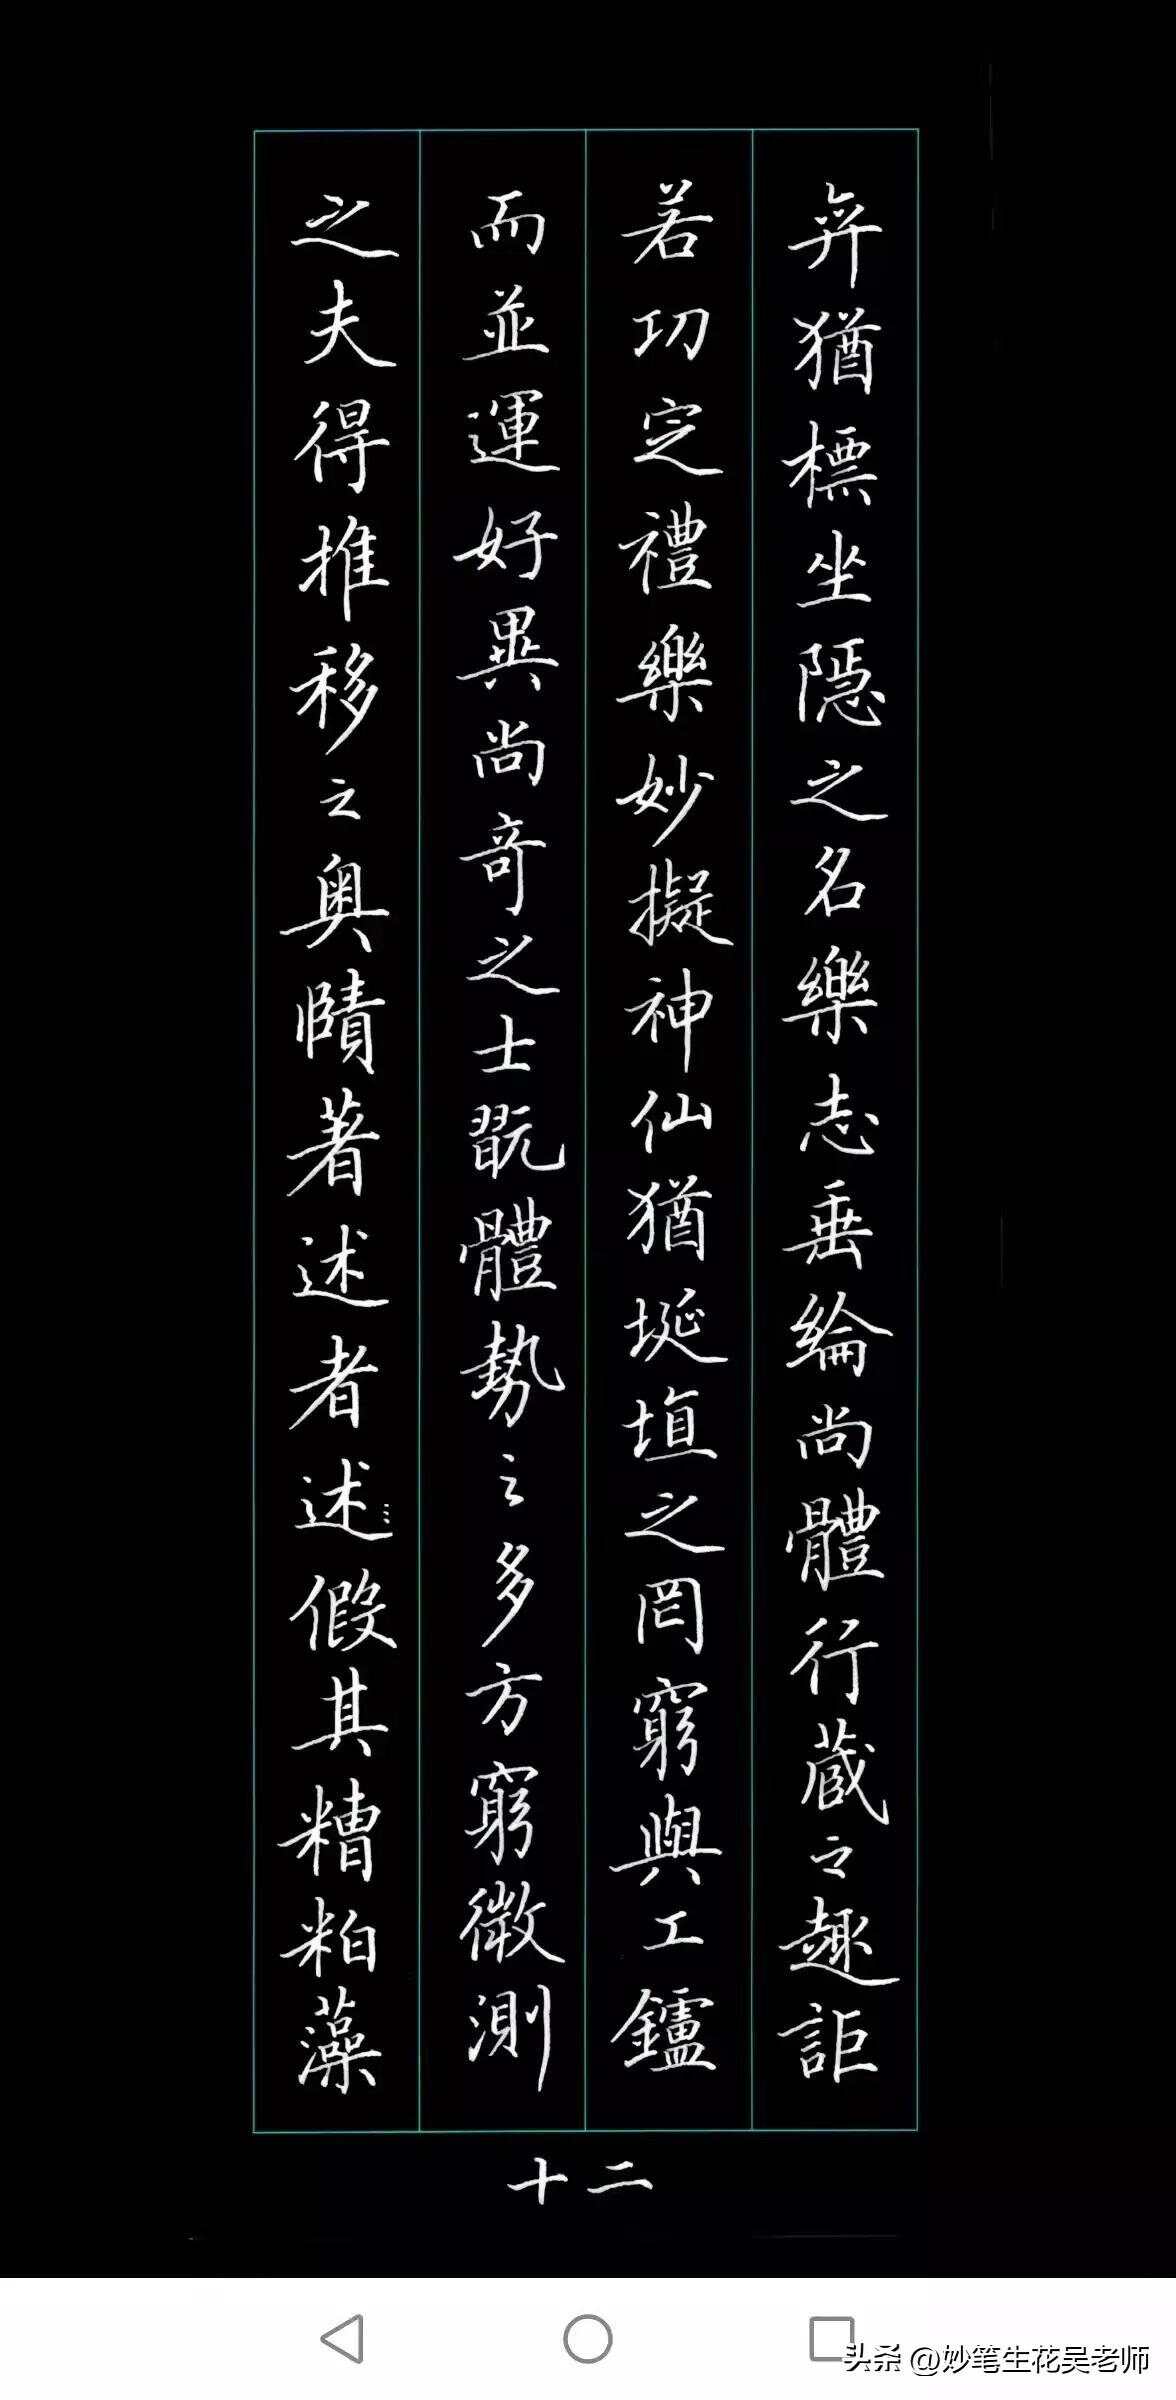 弈猶標坐隱之名樂志垂綸尚體行藏之趣詎
若功定禮樂妙擬神仙猶埏埴之罔窮與工鑪
而並運好異尚奇之士翫體勢之多方窮微測
之夫得推移之奥賾著述者述假其糟粕藻
十二
头条 @妙笔生花吴老师